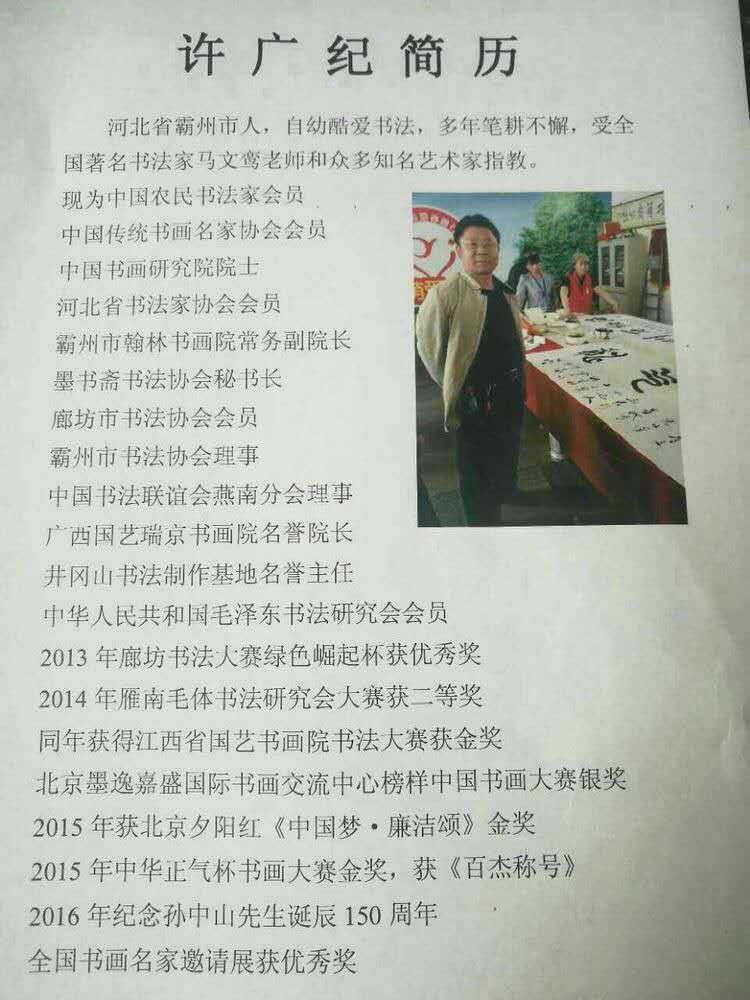 许广纪简历
河北省霸州市人，自幼酷爱书法，多年笔耕不懈，受全
国著名书法家马文鸾老师和众多知名艺术家指教。
现为中国农民书法家会员
中国传统书画名家协会会员
中国书画研究院院士
河北省书法家协会会员
霸州市翰林书画院常务副院长
墨书斋书法协会秘书长
廊坊市书法协会会员
霸州市书法协会理事
中国书法联谊会燕南分会理事
广西国艺瑞京书画院名誉院长
井冈山书法制作基地名誉主任
中华人民共和国毛泽东书法研究会会员
2013 年廊坊书法大赛绿色崛起杯获优秀奖
2014 年雁南毛体书法研究会大赛获二等奖
同年获得江西省国艺书画院书法大赛获金奖
北京墨逸嘉盛国际书画交流中心榜样中国书画大赛银奖
2015 年获北京夕阳红《中国梦·廉洁颂》金奖
2015 年中华正气杯书画大赛金奖，获《百杰称号》
2016 年纪念孙中山先生诞辰 150 周年
全国书画名家邀请展获优秀奖